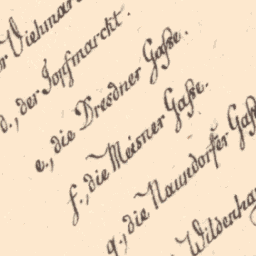 Viehmar
d., der Topfmarckt.
e., die Dresdner Gaße.
f., die Meisner Gaße.
g., die Naundorfer Gaß
Wildenha